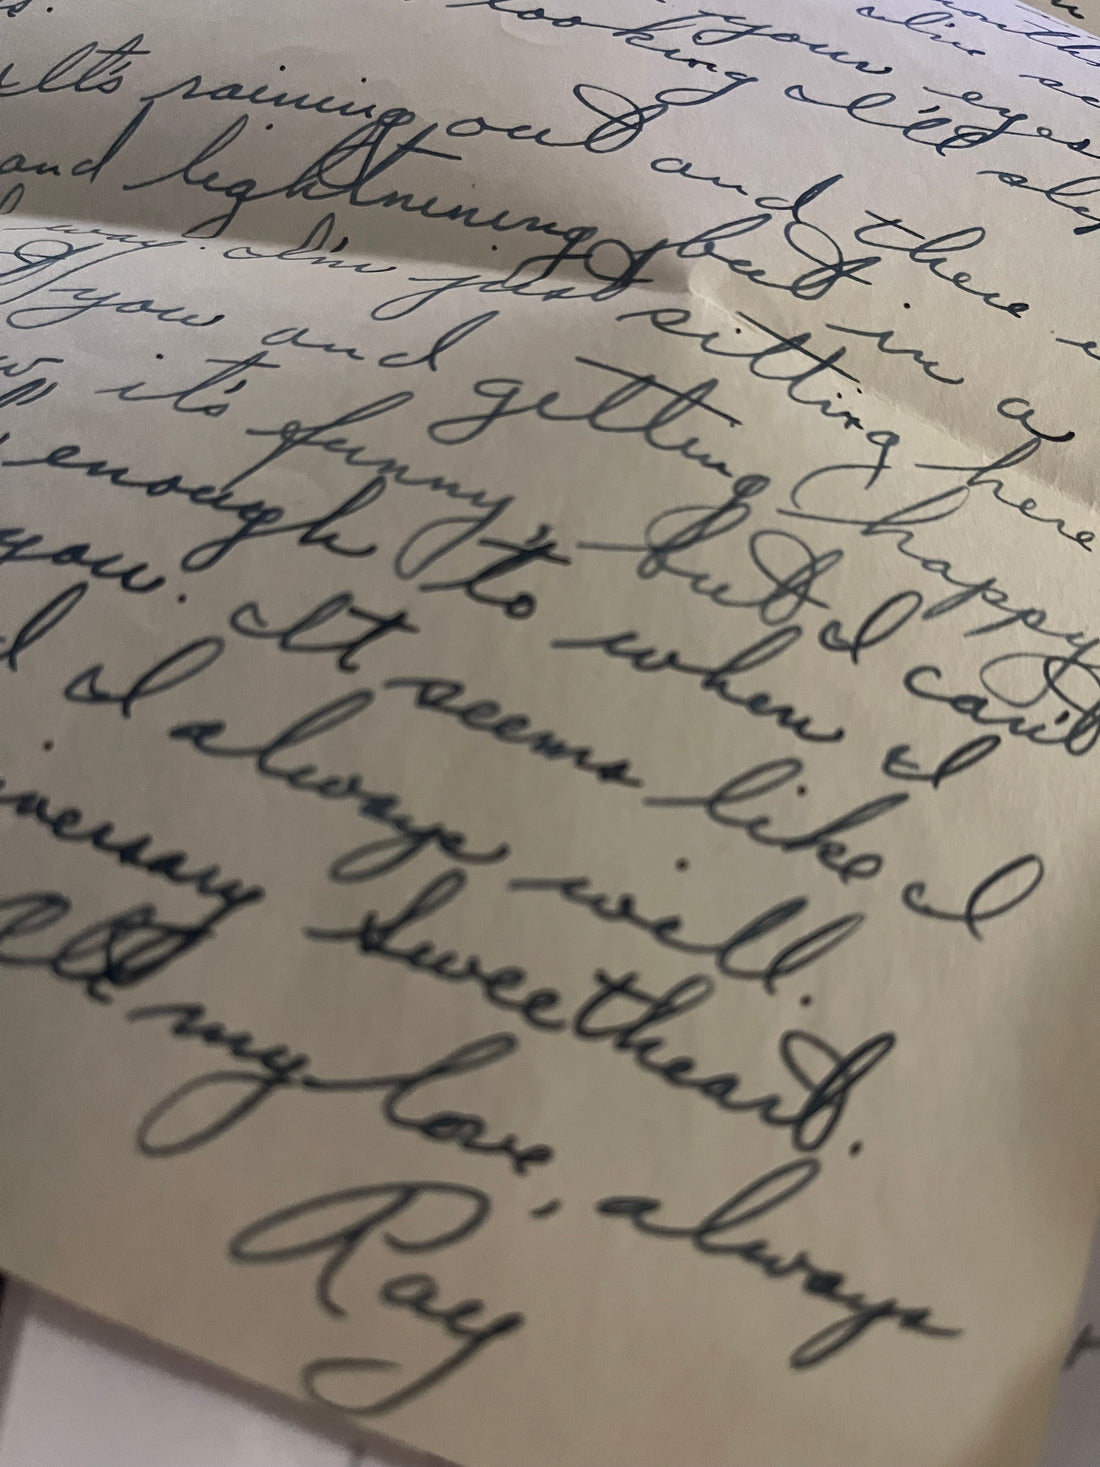 your eyes
looking I'll
It's raining out and there
and lightning but in a
way. I'm just sitting here
you and getting happy
it's funny, but I can't
enough to when I
you. It seems like I
I always will.
Sweetheart.
All my love, always
Ray